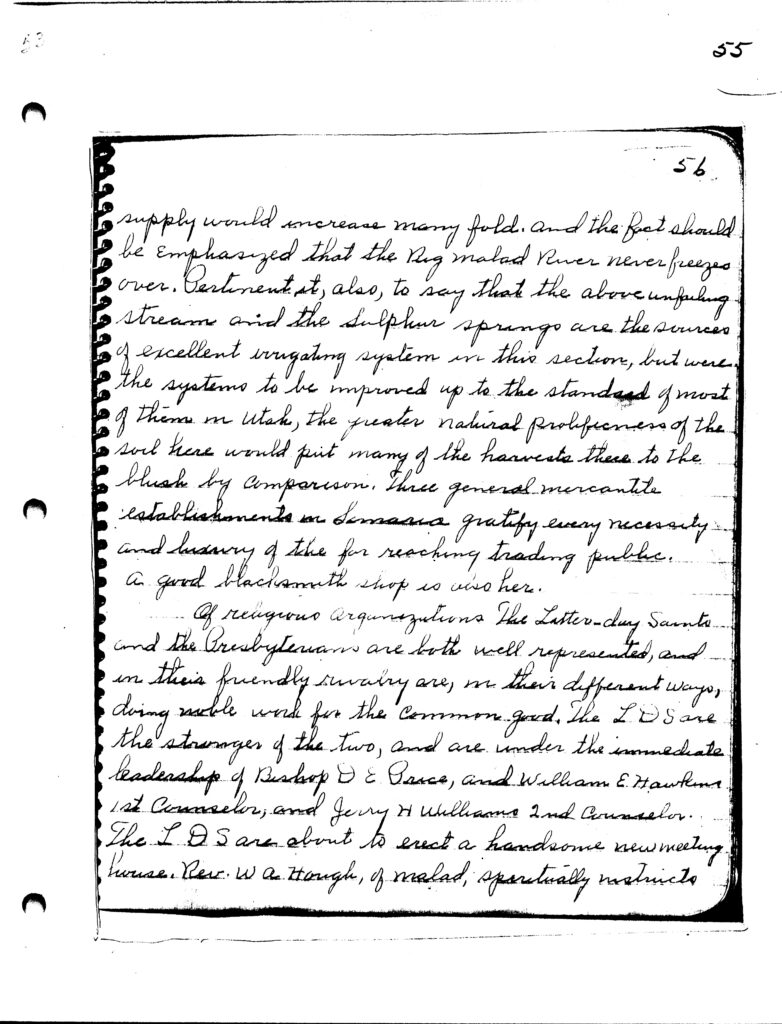 53
55
56
supply would increase many fold. And the fact should
be Emphasized that the Big Malad River never freezes
over. Pertinent it, also, to say that the above unfailing
stream and the Sulphur springs are the sources
of excellent irrigating system in this section, but were
the systems to be improved up to the standard of most
of them in Utah, the greater natural prolificness of the
soil here would put many of the harvests there to the
blush by Comparison. Three general mercantile
establishments in Samaria gratify every necessity
and luxury of the far reaching trading public.
A good blacksmith shop is also her.
Of religious organizations The Latter-day Saints
and the Presbyterians are both well represented, and
in their friendly rivalry are, in their different ways,
doing noble work for the common good. The L D S are
the stronger of the two, and are under the immediate
leadership of Bishop D E Price, and William E. Hawkins
1st Counselor, and Jerry H Williams 2nd Counselor.
The L D S are about to erect a handsome new meeting
house. Rev. W A Hough, of Malad, spiritually instructs